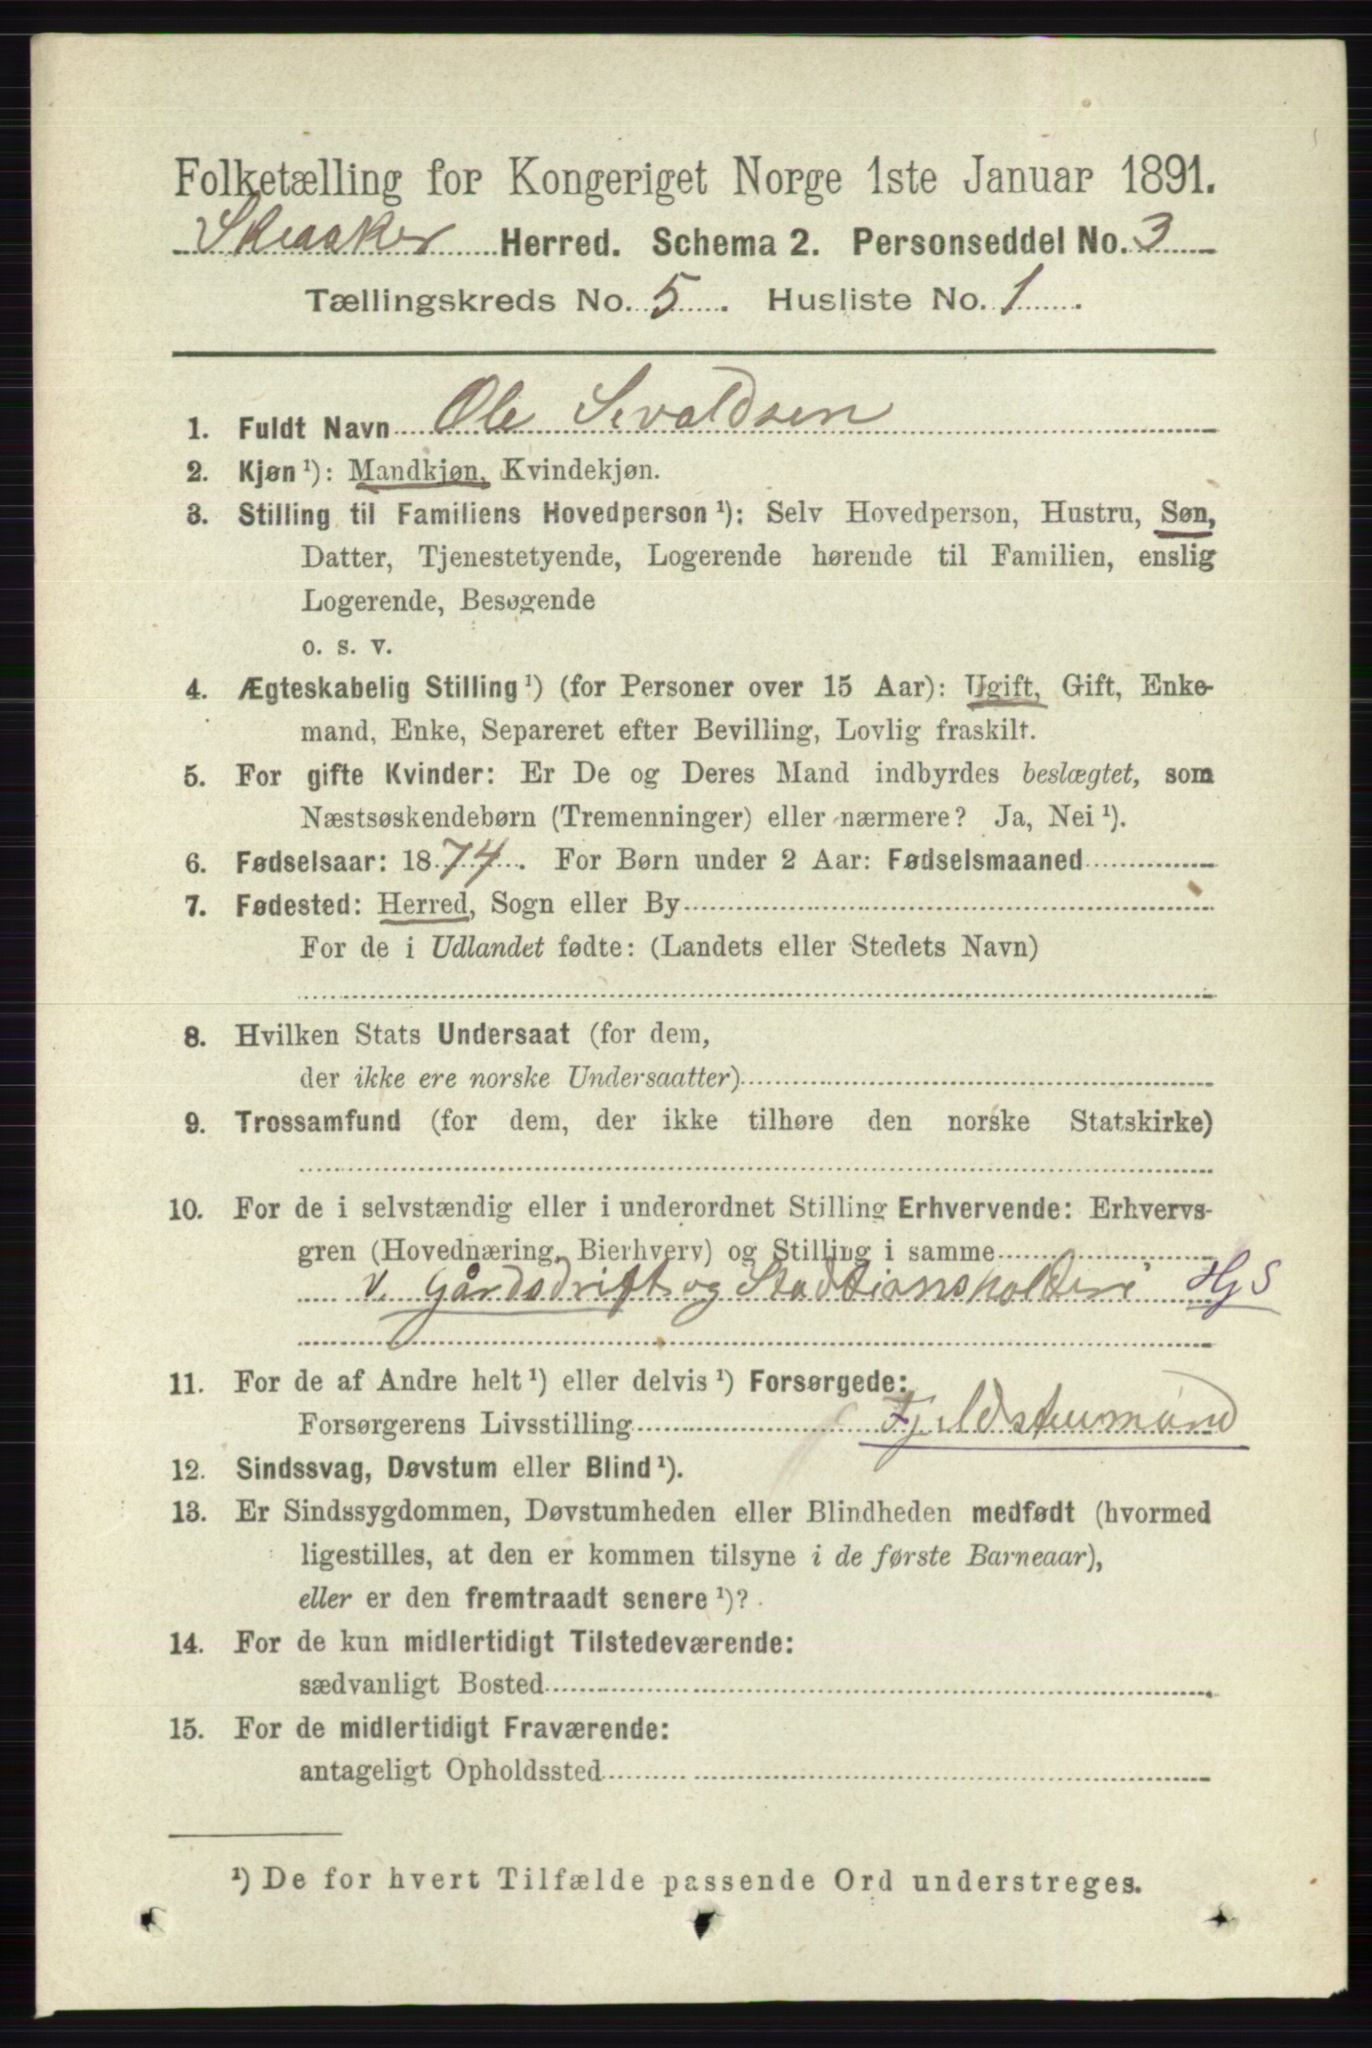 Folketælling for Kongeriget Norge 1ste Januar 1891.
Skiaaker Herred. Schema 2. Personseddel No. 3
Tællingskreds No. 5. Husliste No. 1.
1. Fuldt Navn Ole Sivaldsen
2. Kjøn ¹): Mandkjøn, Kvindekjøn.
3. Stilling til Familiens Hovedperson ¹): Selv Hovedperson, Hustru, Søn,
Datter, Tjenestetyende, Logerende hørende til Familien, enslig
Logerende, Besøgende
o. s. v.
4. Ægteskabelig Stilling ¹) (for Personer over 15 Aar): Ugift, Gift, Enke-
mand, Enke, Separeret efter Bevilling, Lovlig fraskilt.
5. For gifte Kvinder: Er De og Deres Mand indbyrdes beslægtet, som
Næstsøskendebørn (Tremenninger) eller nærmere? Ja, Nei ¹).
6. Fødselsaar: 1874. For Børn under 2 Aar: Fødselsmaaned
7. Fødested: Herred, Sogn eller By
For de i Udlandet fødte: (Landets eller Stedets Navn)
8. Hvilken Stats Undersaat (for dem,
der ikke ere norske Undersaatter)
9. Trossamfund (for dem, der ikke tilhøre den norske Statskirke)
10. For de i selvstændig eller i underordnet Stilling Erhvervende: Erhvervs-
gren (Hovednæring, Bierhverv) og Stilling i samme
v. gårdsdrift og Stadtionsholderi HjS
11. For de af Andre helt ¹) eller delvis ¹) Forsørgede:
Forsørgerens Livsstilling Fjeldstuemand
12. Sindssvag, Døvstum eller Blind ¹).
13. Er Sindssygdommen, Døvstumheden eller Blindheden medfødt (hvormed
ligestilles, at den er kommen tilsyne i de første Barneaar),
eller er den fremtraadt senere ¹)?
14. For de kun midlertidigt Tilstedeværende:
sædvanligt Bosted
15. For de midlertidigt Fraværende:
antageligt Opholdssted
¹) De for hvert Tilfælde passende Ord understreges.